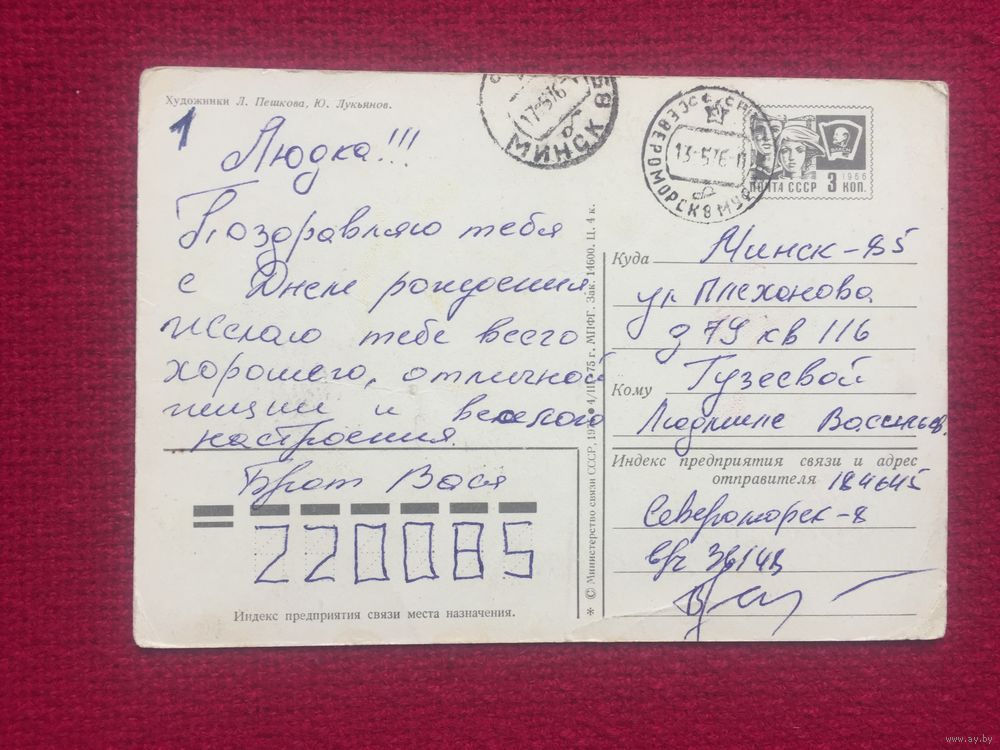 Художники Л. Пешкова, Ю. Лукьянов.
1
Людка!!!
Поздравляю тебя
с Днем рождения.
Желаю тебе всего
хорошего, отличной
жизни и веселого
настроения.
Брат Вася
220085
Индекс предприятия связи места назначения.
* © Министерство связи СССР, 4/III-75 г. МПФГ. Зак. 14600. Ц. 4 к.
МИНСК
17-576
СЕВЕРОМОРСК 8 МУР
13-576
1966
ПОЧТА СССР 3 КОП.
Куда Минск-85
ул Плеханова
д 79 кв 116
Кому Гузеевой
Людмиле Васильев.
Индекс предприятия связи и адрес
отправителя 184645
Североморск-8
в/ч
www.ay.by